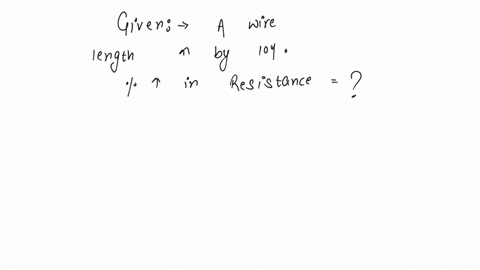 Given:→ A wire
length ↑ by 10%.
% ↑ in Resistance = ?